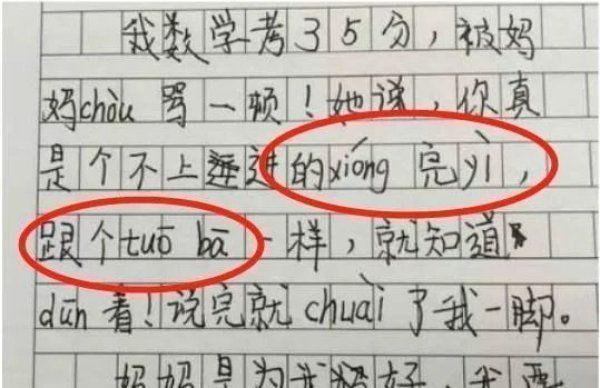 我数学考35分，被妈
妈chòu 骂一顿！她说，你真
是个不上进的xióng 完yì，
跟个tuō bā一样，就知道
dūn 着！说完就chuài了我一脚。
妈妈是为我好，我要